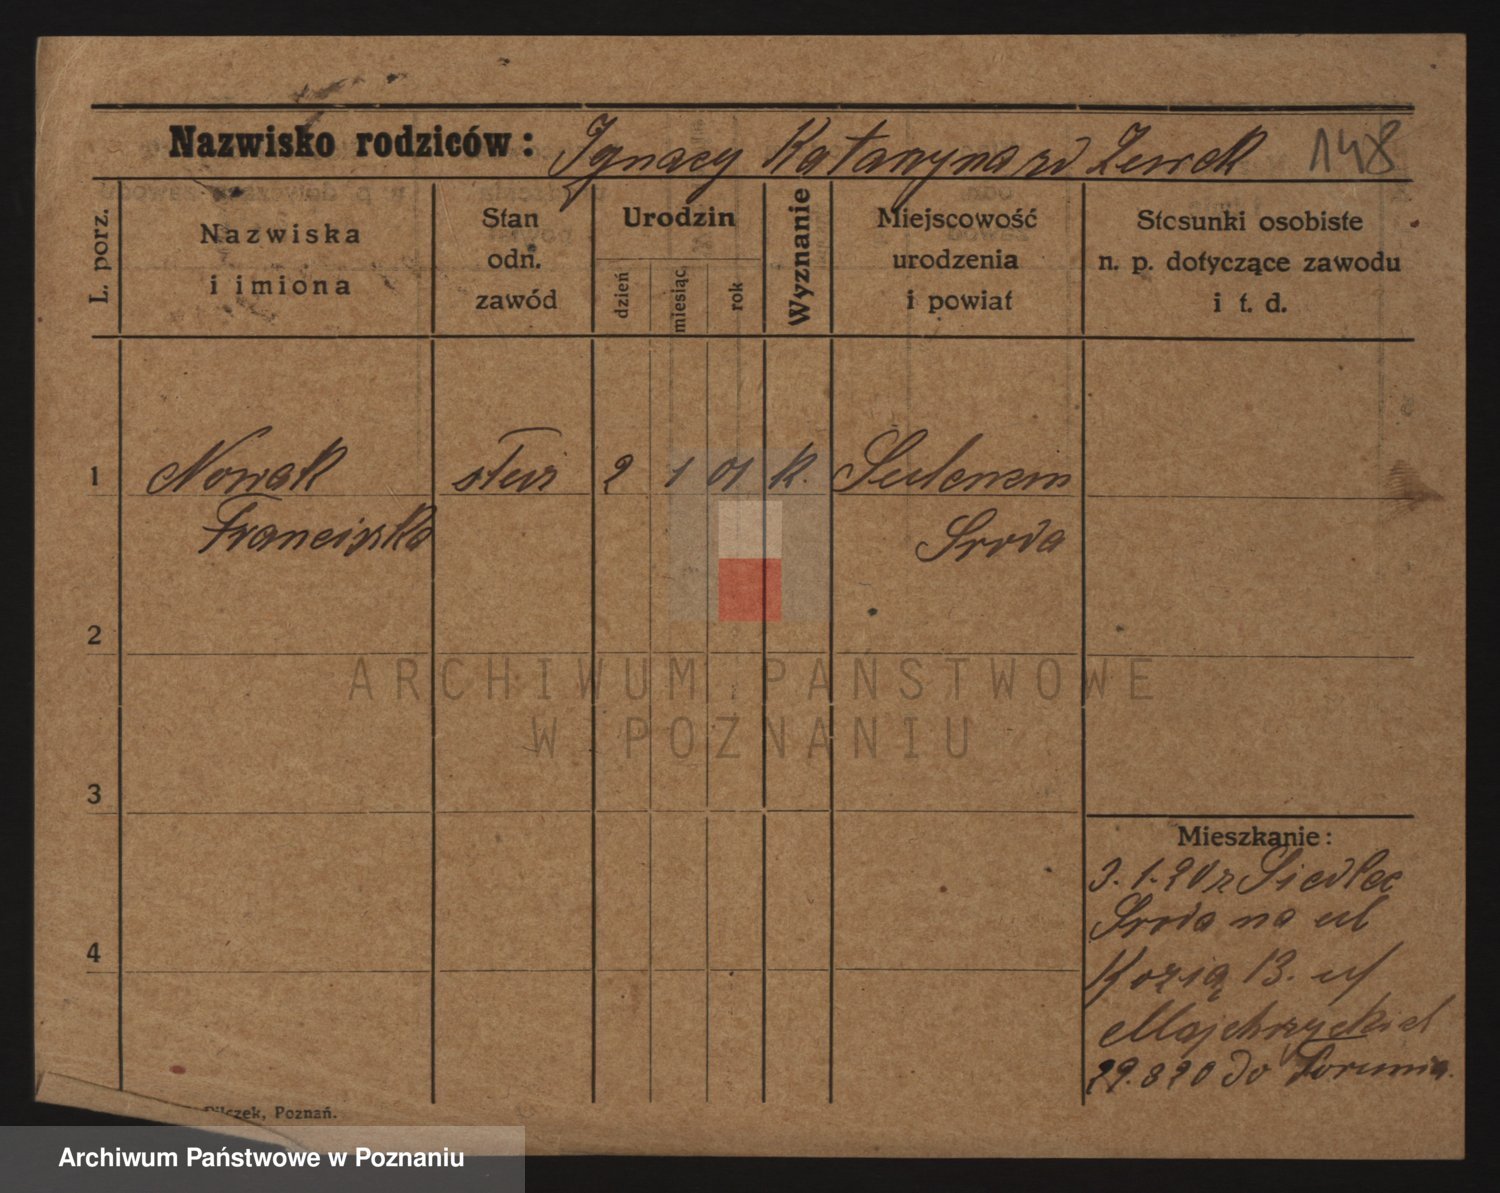 Nazwisko rodziców: Ignacy Katarzyna zd Zewok 148
L. porz.
Nazwiska
i imiona
Stan
odn.
zawód
Urodzin
dzień
miesiąc
rok
Wyznanie
Miejscowość
urodzenia
i powiat
Stosunki osobiste
n. p. dotyczące zawodu
i t. d.
1 Nowak 2 1 01 k.
Franciszka Środa
2
3
4
Mieszkanie:
3. 1. 20 z Siedlec
Środa na ul
Kozią 13. u
29. 8 20 do Torunia.
Pilczek, Poznań.
ARCHIWUM PAŃSTWOWE
W POZNANIU
Archiwum Państwowe w Poznaniu